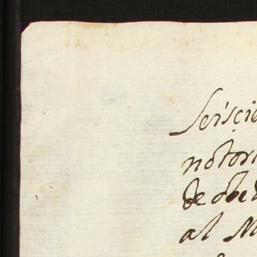 Seiscie
notori
de obed
al M